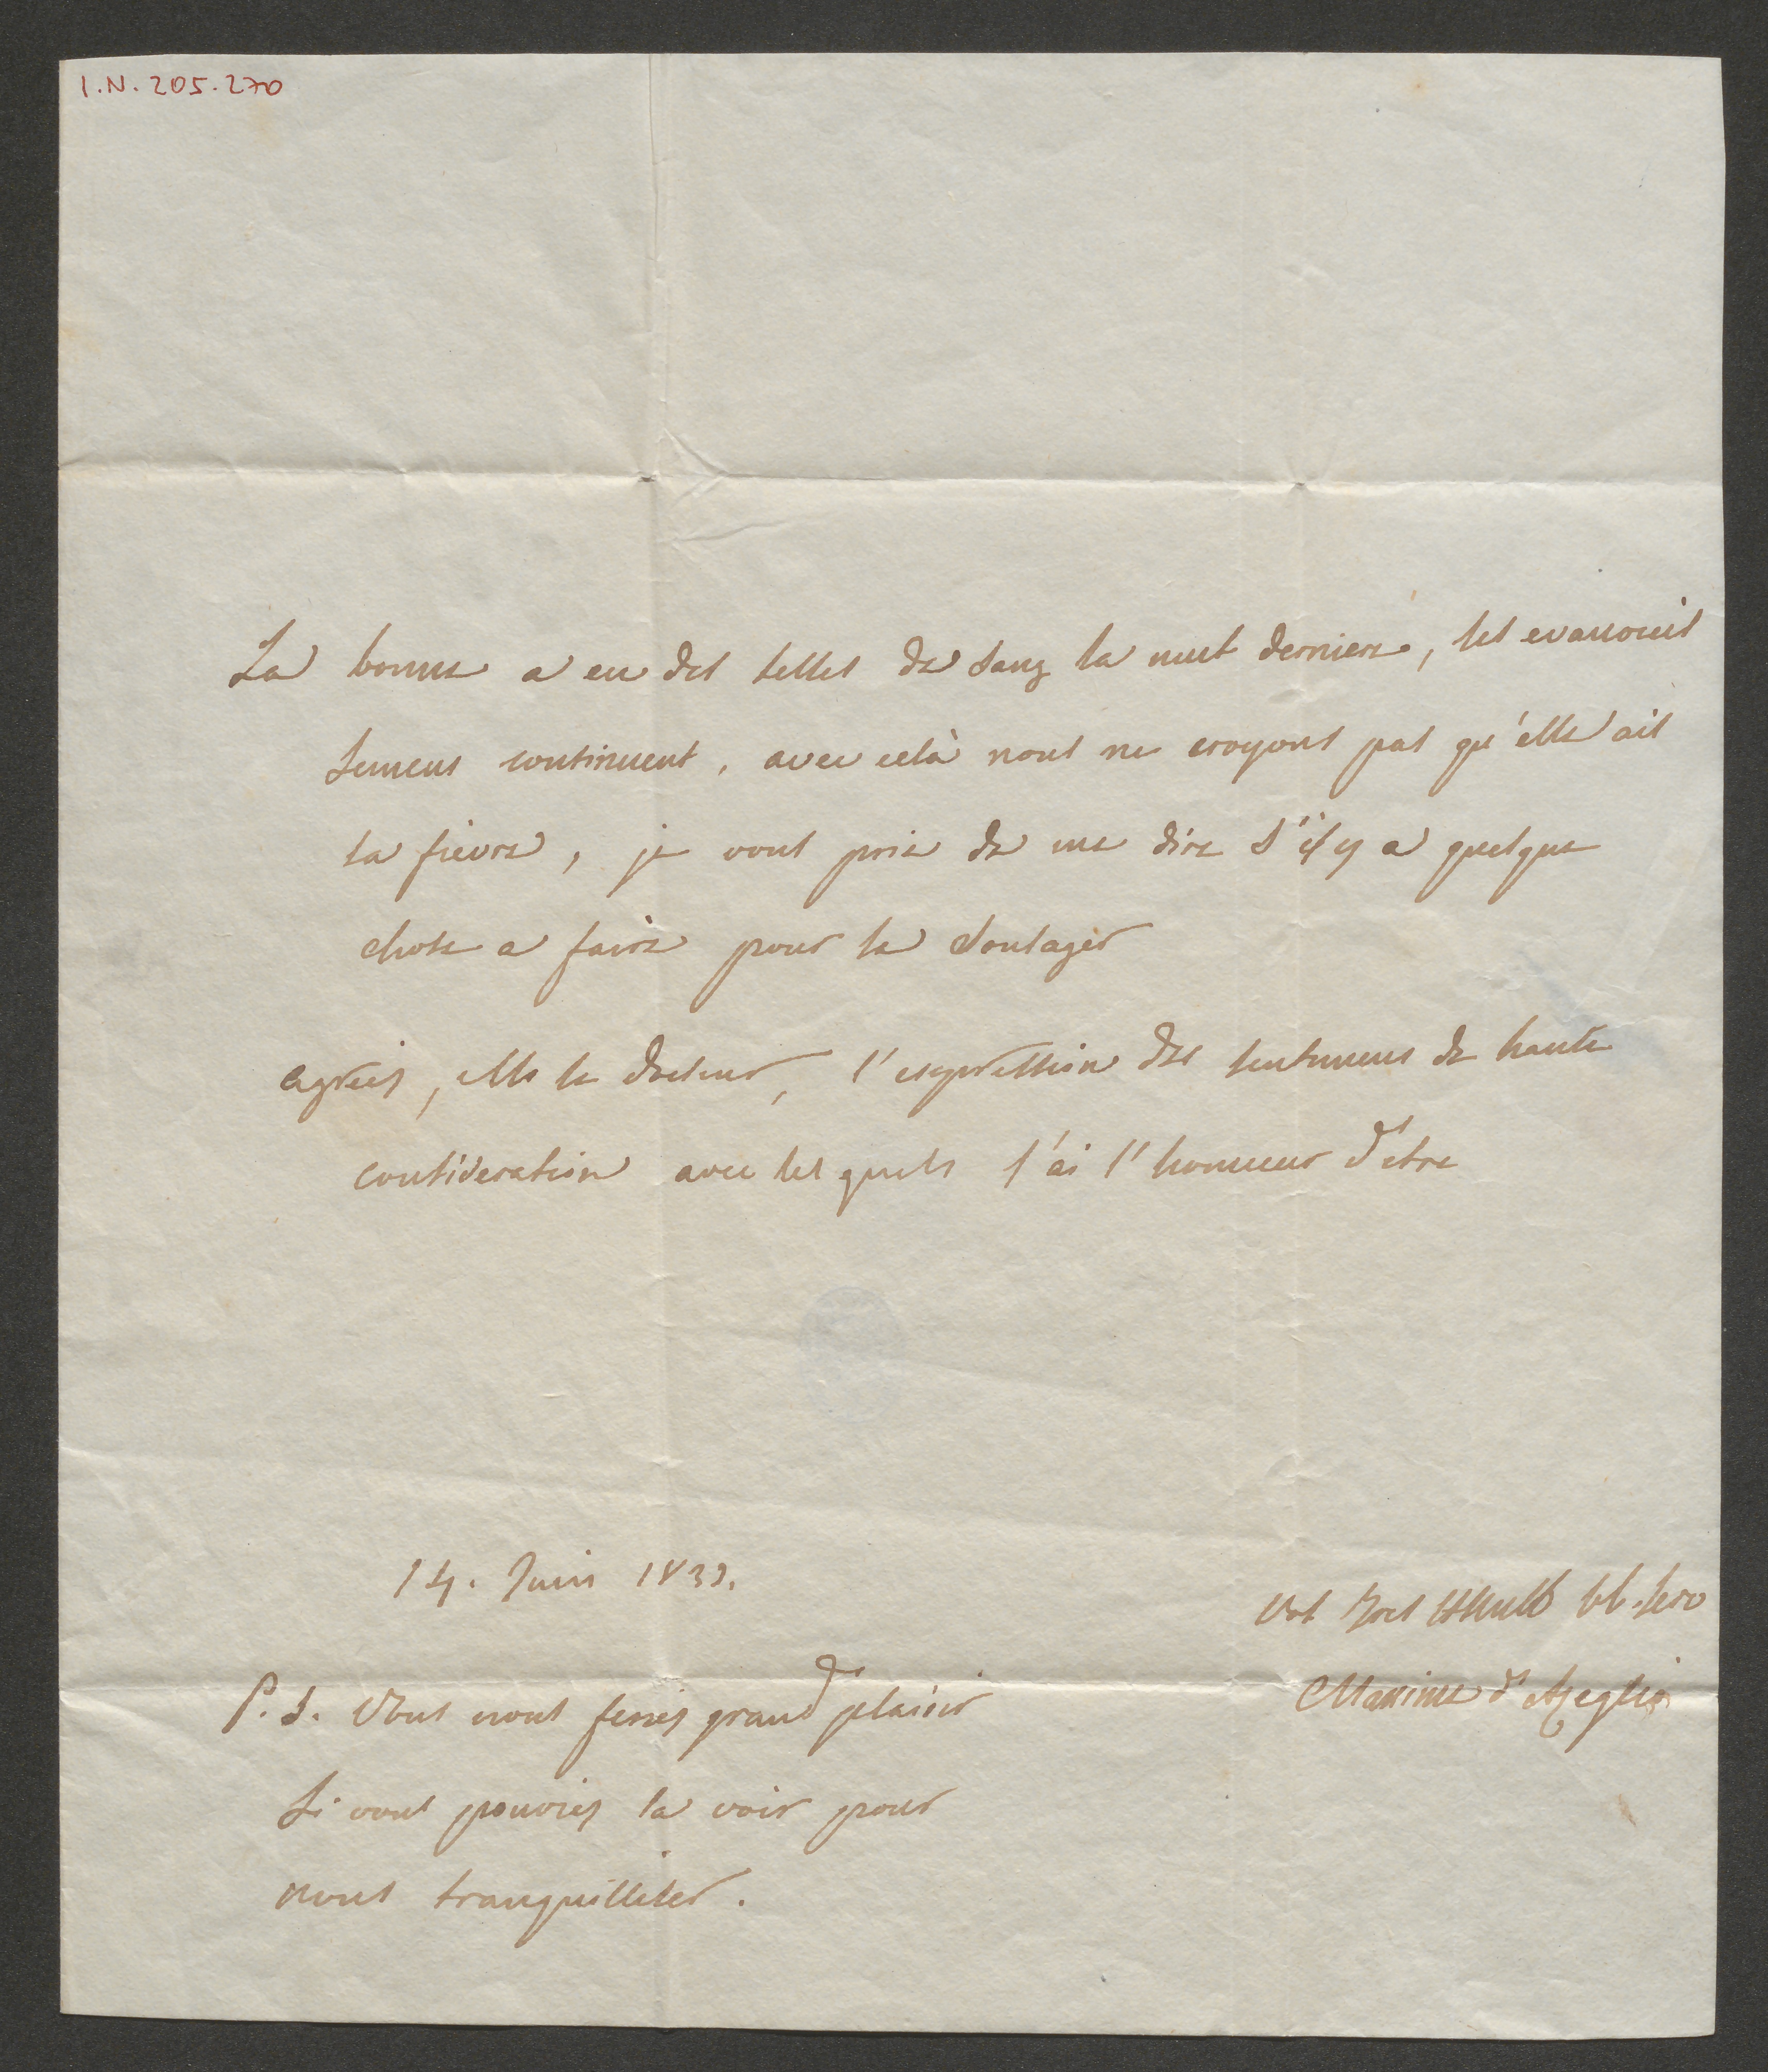 I.N. 205.270
La bonne a eu des selles de sang la nuit derniere, les evanouis
semens continuent, avec celà nous ne croyons pas qu'elle ait
la fievre, je vous prie de me dire s'il y a quelque
chose a faire pour la soulager
agreés, le docteur, l'expression des sentimens de haute
consideration avec les quels j'ai l'honneur d'etre
14. Juin 1833.
Maxime d'Azeglio
P.S. Vous nous feriés grand plaisir
Si vous pouviés la voir pour
nous tranquilliser.